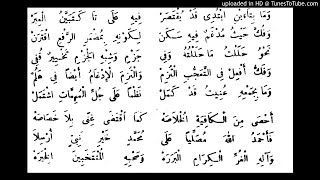 uploaded in HD @ TunesToTube.com
وَمَا بِتَاءَيْنِ ابْتُدِى قَدْ يُقْتَصَرْ فِيهِ عَلَى تَا كَتَبَيَّنُ الْعِبَرْ
وَفُكَّ حَيْثُ مُدْغَمٌ فِيهِ سَكَنْ لِكَوْنِهِ بِمُضْمَرِ الرَّفْعِ اقْتَرَنْ
نَحْوُ حَلَلْتُ مَا حَلَلْتُهُ وَفِي جَزْمٍ وَشِبْهِ الْجَزْمِ تَخْيِيرٌ قُفِي
وَفَكُّ أَفْعِلْ فِي التَّعَجُّبِ الْتُزِمْ وَالْتُزِمَ الْإِدْغَامُ أَيْضًا فِي هَلُمْ
وَمَا بِجَمْعِهِ عُنِيتُ قَدْ كَمَلْ نَظْمًا عَلَى جُلِّ الْمُهِمَّاتِ اشْتَمَلْ
أَحْصَى مِنَ الْكَافِيَةِ الْخُلَاصَهْ كَمَا اقْتَضَى غِنًى بِلَا خَصَاصَهْ
فَأَحْمَدُ اللهَ مُصَلِّيًا عَلَى مُحَمَّدٍ خَيْرِ نَبِيٍّ أُرْسِلَا
وَآلِهِ الْغُرِّ الْكِرَامِ الْبَرَرَهْ وَصَحْبِهِ الْمُنْتَخَبِينَ الْخِيَرَهْ